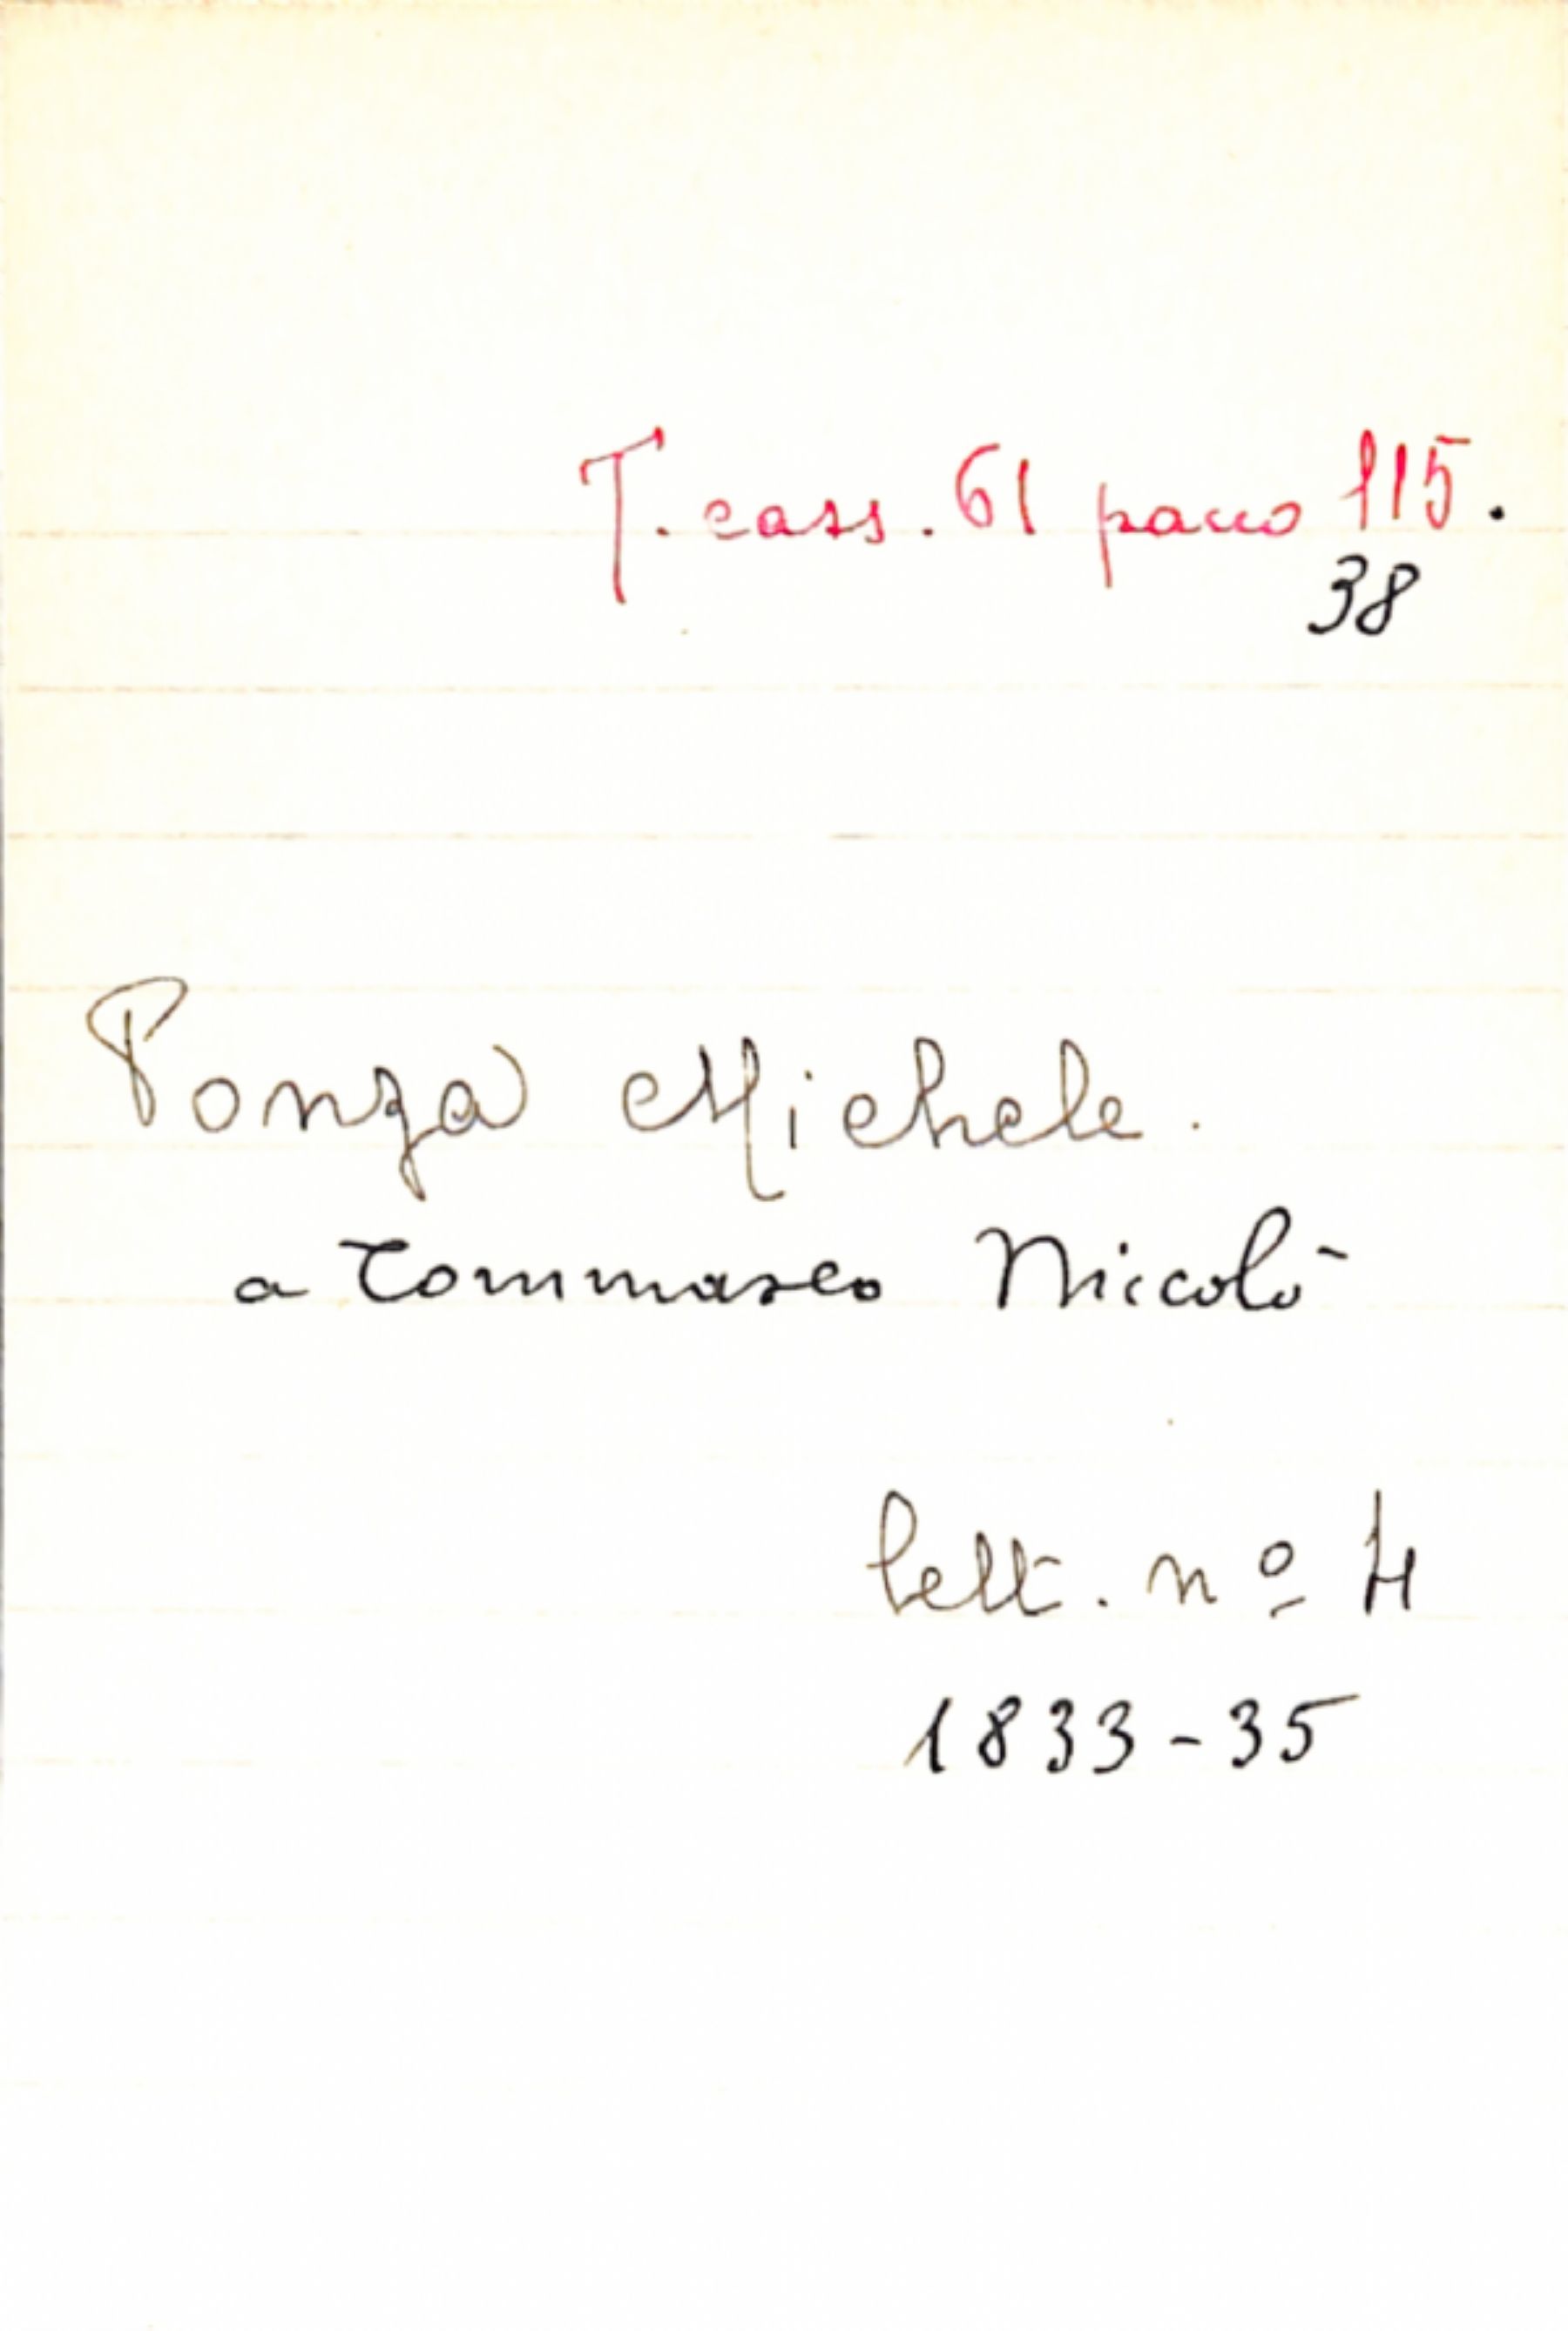 T. cass. 61 pacco 115.
38
Ponza Michele.
a Tommaseo Niccolò
lett. nº 4
1833-35